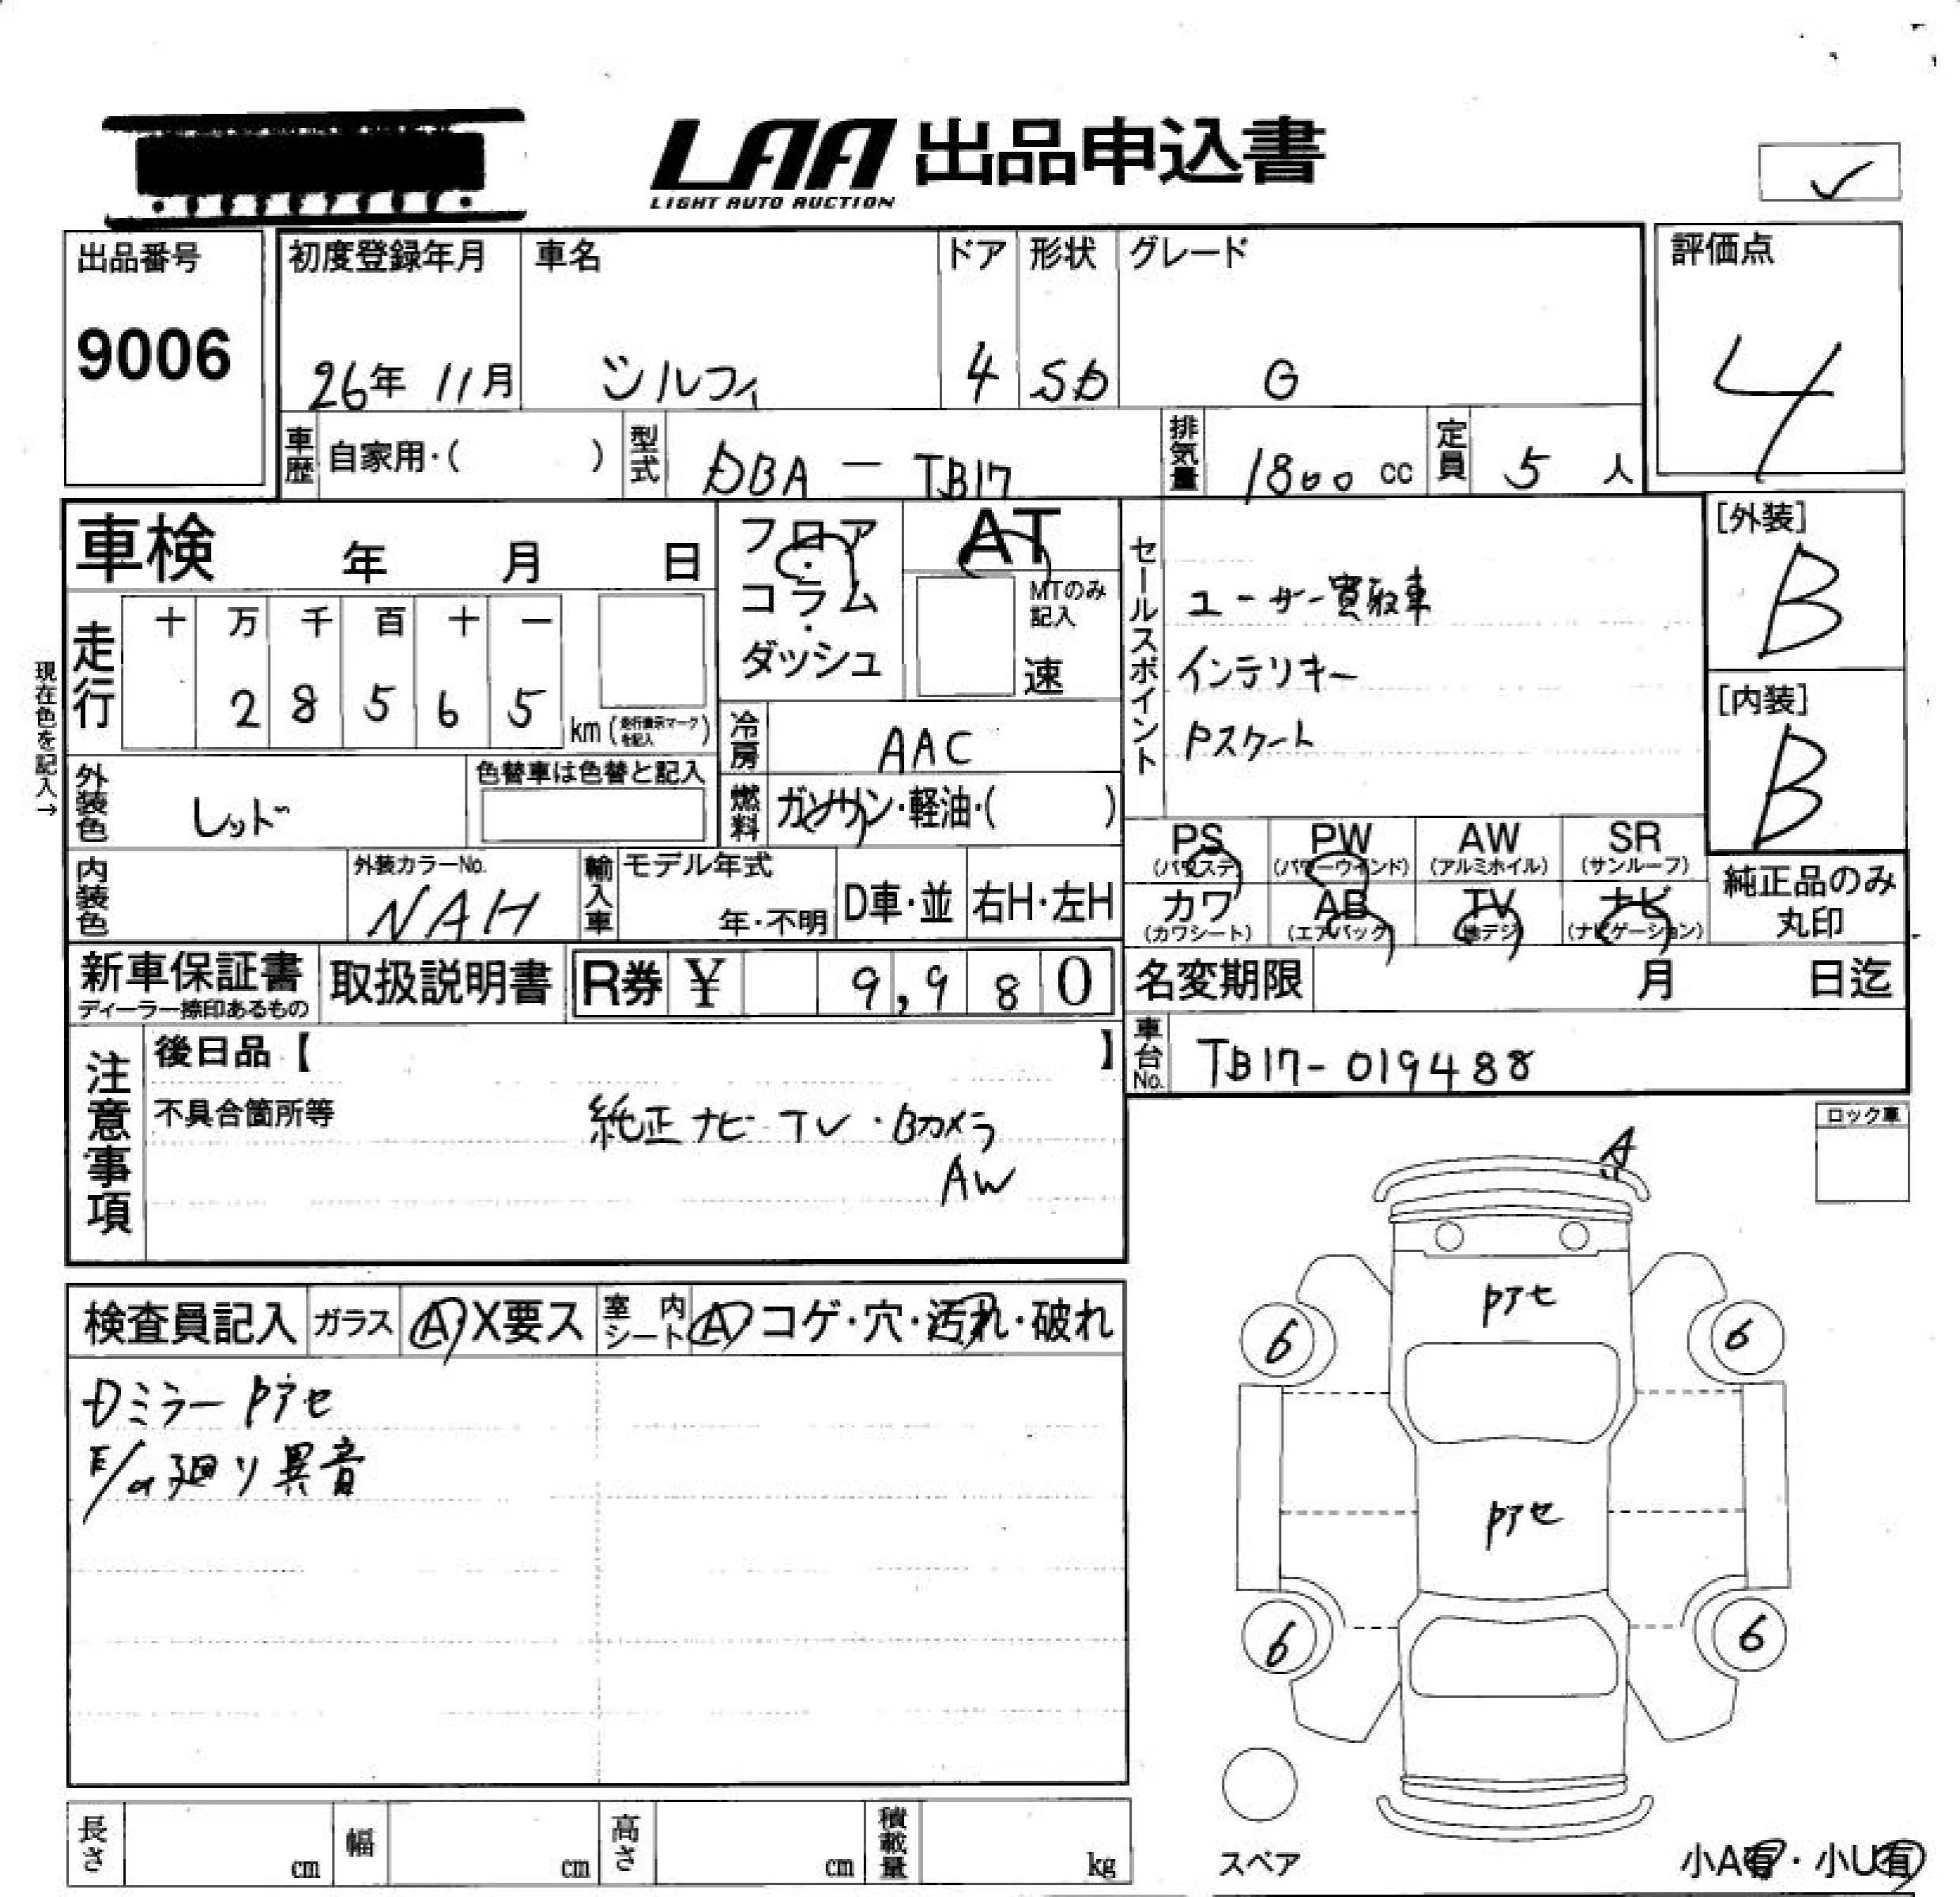 LAA 出品申込書
LIGHT AUTO AUCTION
✓
出品番号
9006
初度登録年月
26年 11月
車名
シルフィ
ドア
4
形状
SD
グレード
G
評価点
4
車歴 自家用・( )
型式 DBA - TB17
排気量 1800 cc
定員 5 人
車検 年 月 日
フロア・コラム・ダッシュ
AT
MTのみ記入
速
セールスポイント
ユーザー買取車
インテリキー
Pスタート
[外装]
B
[内装]
B
現在色を記入→
走行
十 万 千 百 十 一
2 8 5 6 5
km (走行表示マークを記入)
冷房 AAC
外装色 レッド
色替車は色替と記入
燃料 ガソリン・軽油・( )
PS (パワステ)
PW (パワーウインド)
AW (アルミホイル)
SR (サンルーフ)
カワ (カワシート)
AB (エアバック)
TV (地デジ)
ナビ (ナビゲーション)
純正品のみ丸印
内装色
外装カラーNo.
NAH
輸入車
モデル年式
年・不明
D車・並
右H・左H
新車保証書
ディーラー捺印あるもの
取扱説明書
R券 ¥ 9,980
名変期限 月 日迄
車台No. TB17-019488
注意事項
後日品【 】
不具合箇所等
純正ナビ TV・Bカメラ
AW
ロック車
A
検査員記入
ガラス A・X要ス
室内シート A コゲ・穴・汚れ・破れ
Dミラー Pアセ
E/G廻り異音
Pアセ
6
6
Pアセ
6
6
スペア
小A有・小U有
長さ cm
幅 cm
高さ cm
積載量 kg